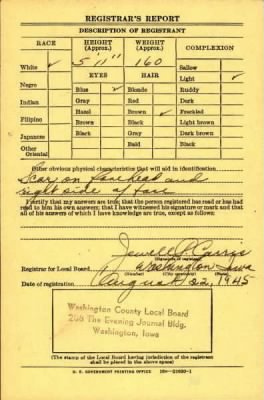 REGISTRAR'S REPORT
DESCRIPTION OF REGISTRANT
RACE
HEIGHT
(Approx.)
WEIGHT
(Approx.)
COMPLEXION
White ✓
5'11"
160
Sallow
EYES
HAIR
Light ✓
Negro
Blue ✓
Blonde
Ruddy
Indian
Gray
Red
Dark
Filipino
Hazel
Brown ✓
Freckled
Brown
Black
Light brown
Japanese
Black
Gray
Dark brown
Other
Oriental
Bald
Black
Other obvious physical characteristics that will aid in identification
Scar on forehead and
right side of face
I certify that my answers are true; that the person registered has read or has had
read to him his own answers; that I have witnessed his signature or mark and that
all of his answers of which I have knowledge are true, except as follows:
Jewell
(Signature of registrar)
Registrar for Local Board
Washington Iowa
(Number) (City or county) (State)
Date of registration
August 22, 1945
Washington County Local Board
The Evening Journal Bldg.
Washington, Iowa
(The stamp of the Local Board having jurisdiction of the registrant
shall be placed in the above space)
U. S. GOVERNMENT PRINTING OFFICE